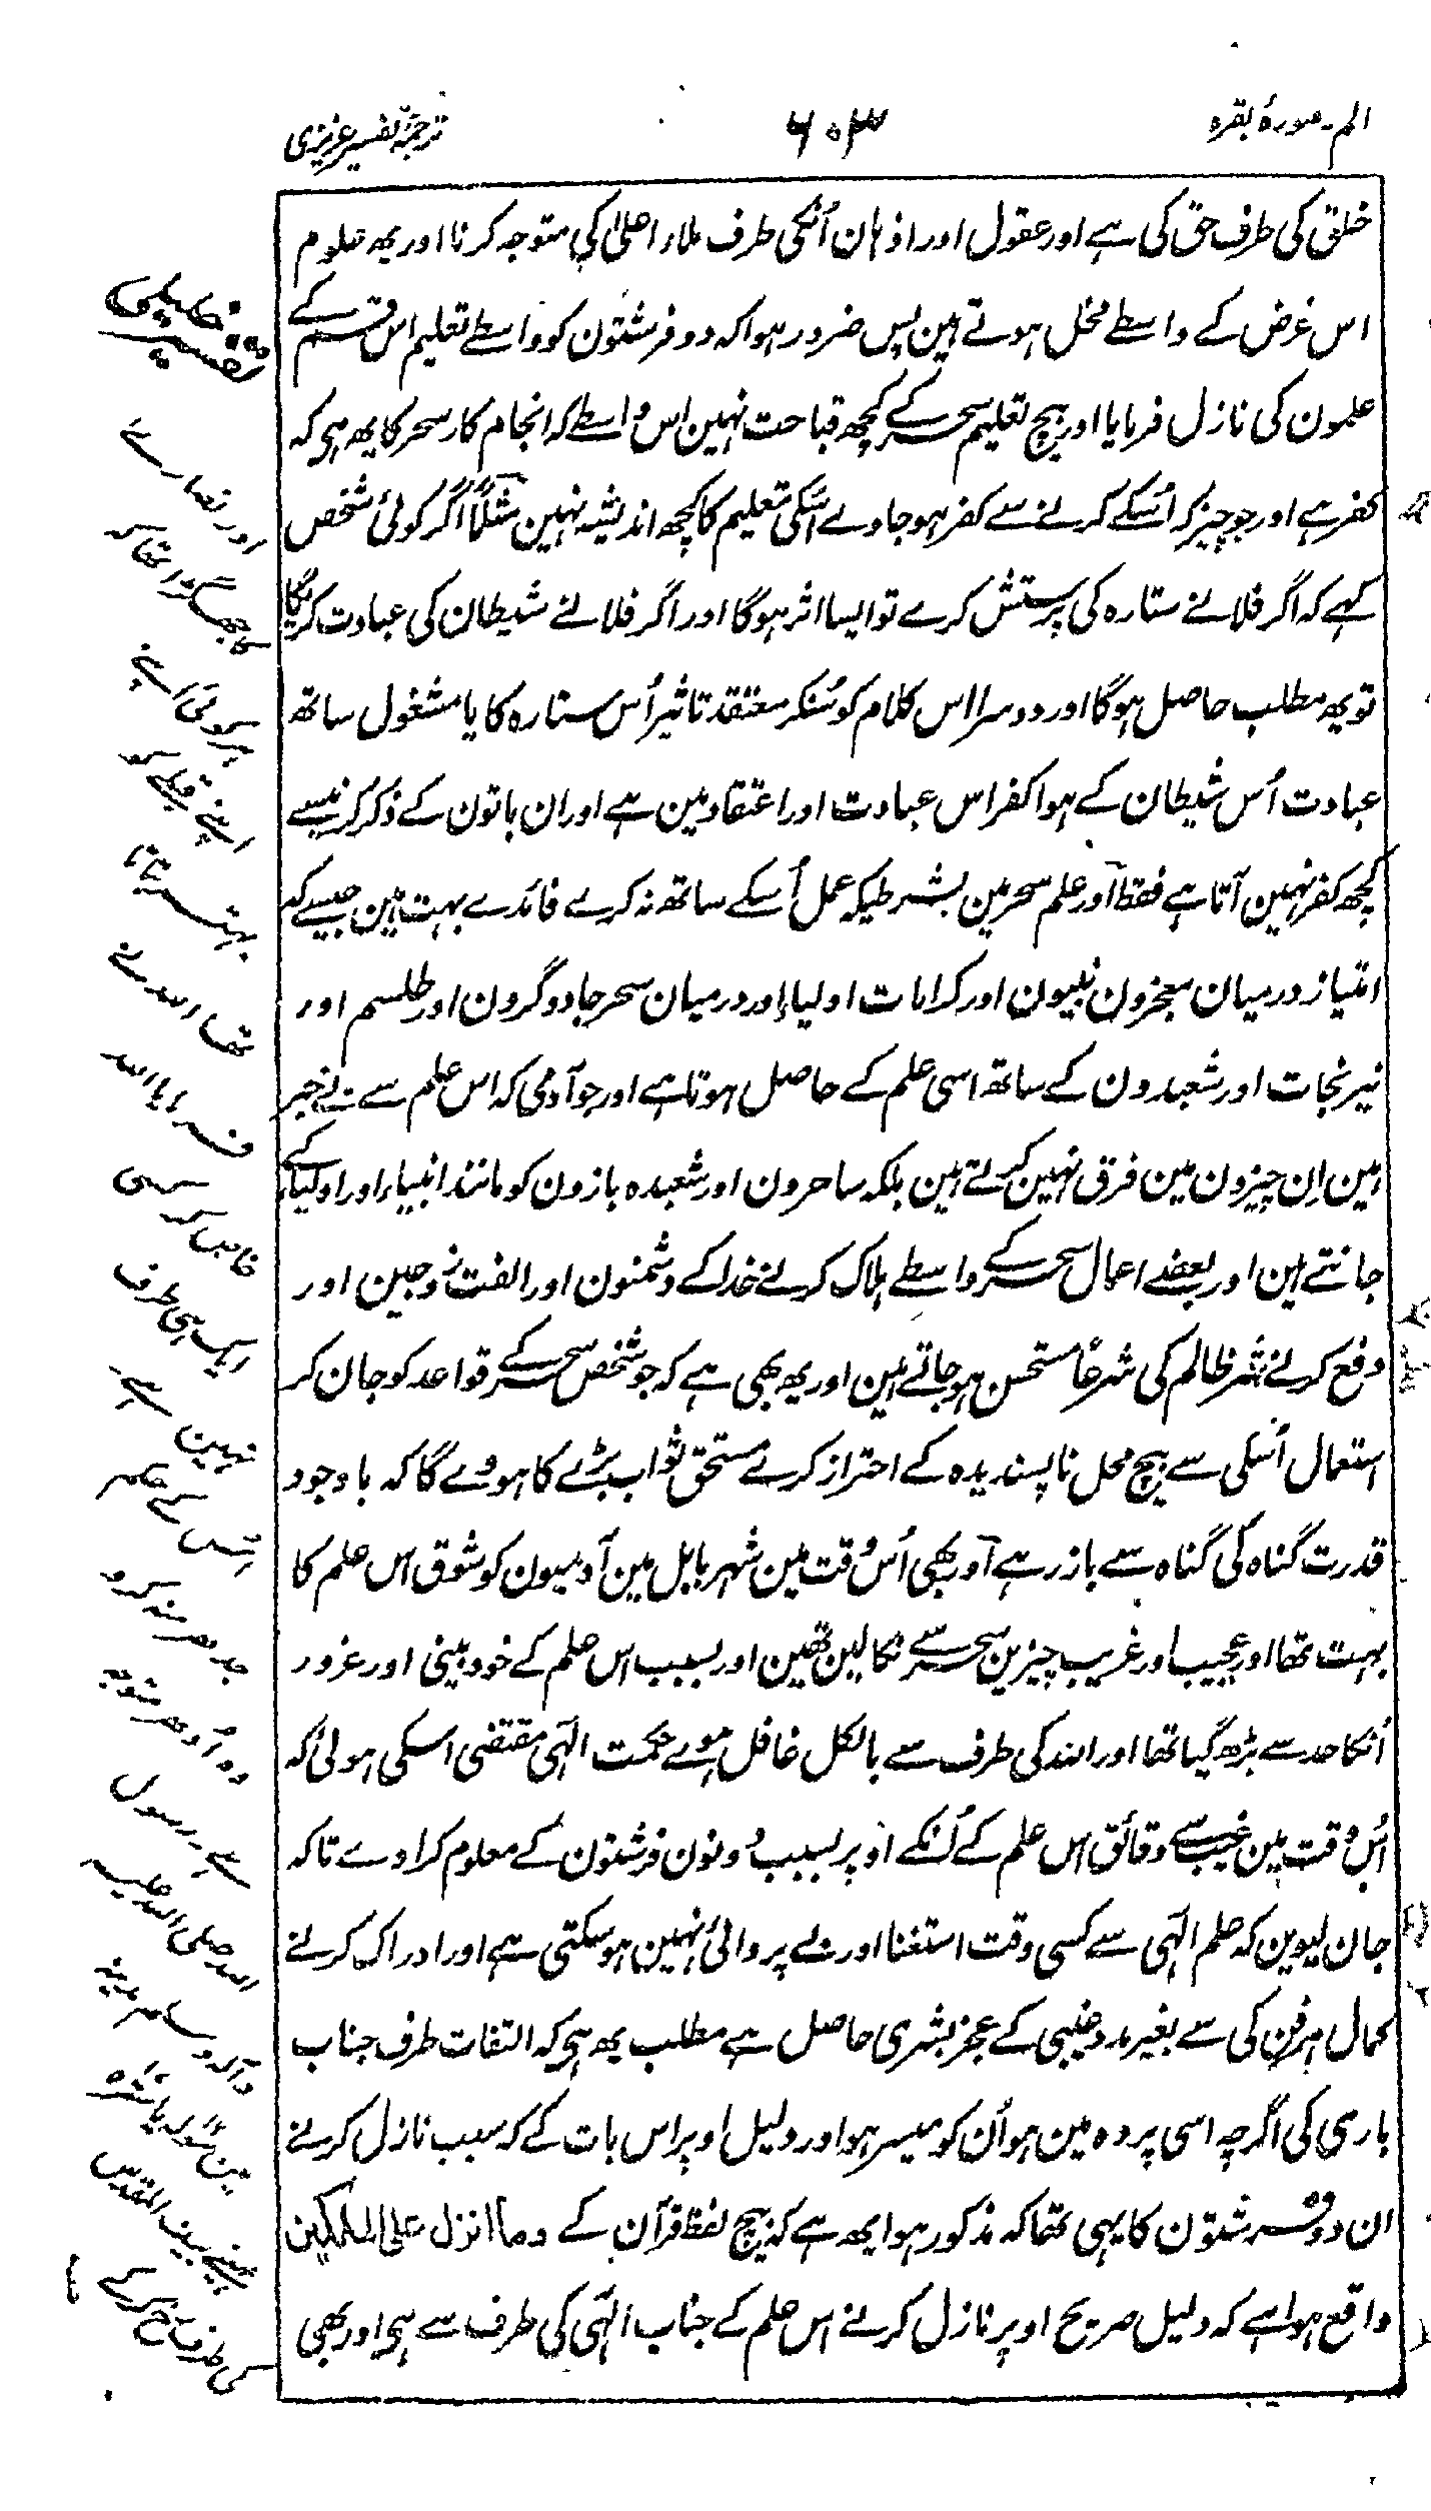 الم۔ سورۂ بقرہ
۶۰۳
ترجمۂ تفسیر عزیزی
خلق کی طرف حق کی ہے اور عقول اور اذہان اُنکی طرف ملاء اعلیٰ کی متوجہ کرنا اور یہ علوم
اس غرض کے واسطے مخل ہوتے ہین پس ضرور ہوا کہ دو فرشتون کو واسطے تعلیم اس قسم کے
علمون کی نازل فرمایا اور بیچ تعلیم سحر کے کچھ قباحت نہین اس واسطے کہ انجام کار سحر کا یہ ہی کہ
کفر ہے اور جو چیز کہ اُسکے کرنے سے کفر ہو جاوے اُسکی تعلیم کا کچھ اندیشہ نہین مثلًا اگر کوئی شخص
کہے کہ اگر فلانے ستارہ کی پرستش کرے تو ایسا اثر ہوگا اور اگر فلانے شیطان کی عبادت کریگا
تو یہ مطلب حاصل ہوگا اور دوسرا اس کلام کو سُنکر معتقد تاثیر اُس ستارہ کا یا مشغول ساتھ
عبادت اُس شیطان کے ہوا کفر اس عبادت اور اعتقاد مین ہے اور ان باتون کے ذکر کرنیسے
کچھ کفر نہین آتا ہے فقط آور علم سحر مین بشرطیکہ عمل اُسکے ساتھ نہ کرے فائدے بہت ہین جیسے کہ
امتیاز درمیان معجزون نبیون اور کرامات اولیا اور درمیان سحر جادوگرون اور طلسم اور
نیرنجات اور شعبدون کے ساتھ اسی علم کے حاصل ہوتا ہے اور جو آدمی کہ اس علم سے بے خبر
ہین اِن چیزون مین فرق نہین کرتے ہین بلکہ ساحرون اور شعبدہ بازون کو مانند انبیاء اور اولیاء کے
جانتے ہین اور بعضے اعمال سحر کے واسطے ہلاک کرنے خدا کے دشمنون اور الفت زوجین اور
دفع کرنے شر ظالم کی شرعًا مستحسن ہو جاتے ہین اور یہ بھی ہے کہ جو شخص سحر کے قواعد کو جان کر
استعمال اُسکی سے بیچ محل ناپسندیدہ کے احتراز کرے مستحق ثواب بڑے کا ہووے گا کہ باوجود
قدرت گناہ کی گناہ سے باز رہے آور بھی اُس وقت مین شہر بابل مین آدمیون کو شوق اس علم کا
بہت تھا اور عجیب اور غریب چیزین سحر سے نکالین تھین اور بسبب اس علم کے خود بینی اور غرور
اُنکا حد سے بڑھ گیا تھا اور اللہ کی طرف سے بالکل غافل ہوے حکمت الٰہی مقتضی اسکی ہوئی کہ
اُس وقت مین غیب سے دقائق اس علم کے اُنکے اوپر بسبب دونون فرشتون کے معلوم کرا دے تاکہ
جان لیوین کہ علم الٰہی سے کسی وقت استغنا اور بے پروائی نہین ہو سکتی ہے اور ادراک کرنے
کمال ہر فن کی سے بغیر مدد غیبی کے عجز بشری حاصل ہے مطلب یہ ہی کہ التفات طرف جناب
باری کی اگرچہ اسی پردہ مین ہو اُن کو میسر ہو اور دلیل اوپر اس بات کے کہ سبب نازل کرنے
ان دو فرشتون کا یہی تھا کہ مذکور ہوا یہ ہے کہ بیچ لفظ قرآن کے وما انزل علی الملکین
واقع ہوا ہے کہ دلیل صریح اوپر نازل کرنے اس علم کے جناب الٰہی کی طرف سے ہی اور بھی
اپنے قبلے کو
نہین ہے
جدھر منہ کرو
وہ اُدھر متوجہ
ہے۔ رسول
اللہ صلی اللہ علیہ
بیت المقدس